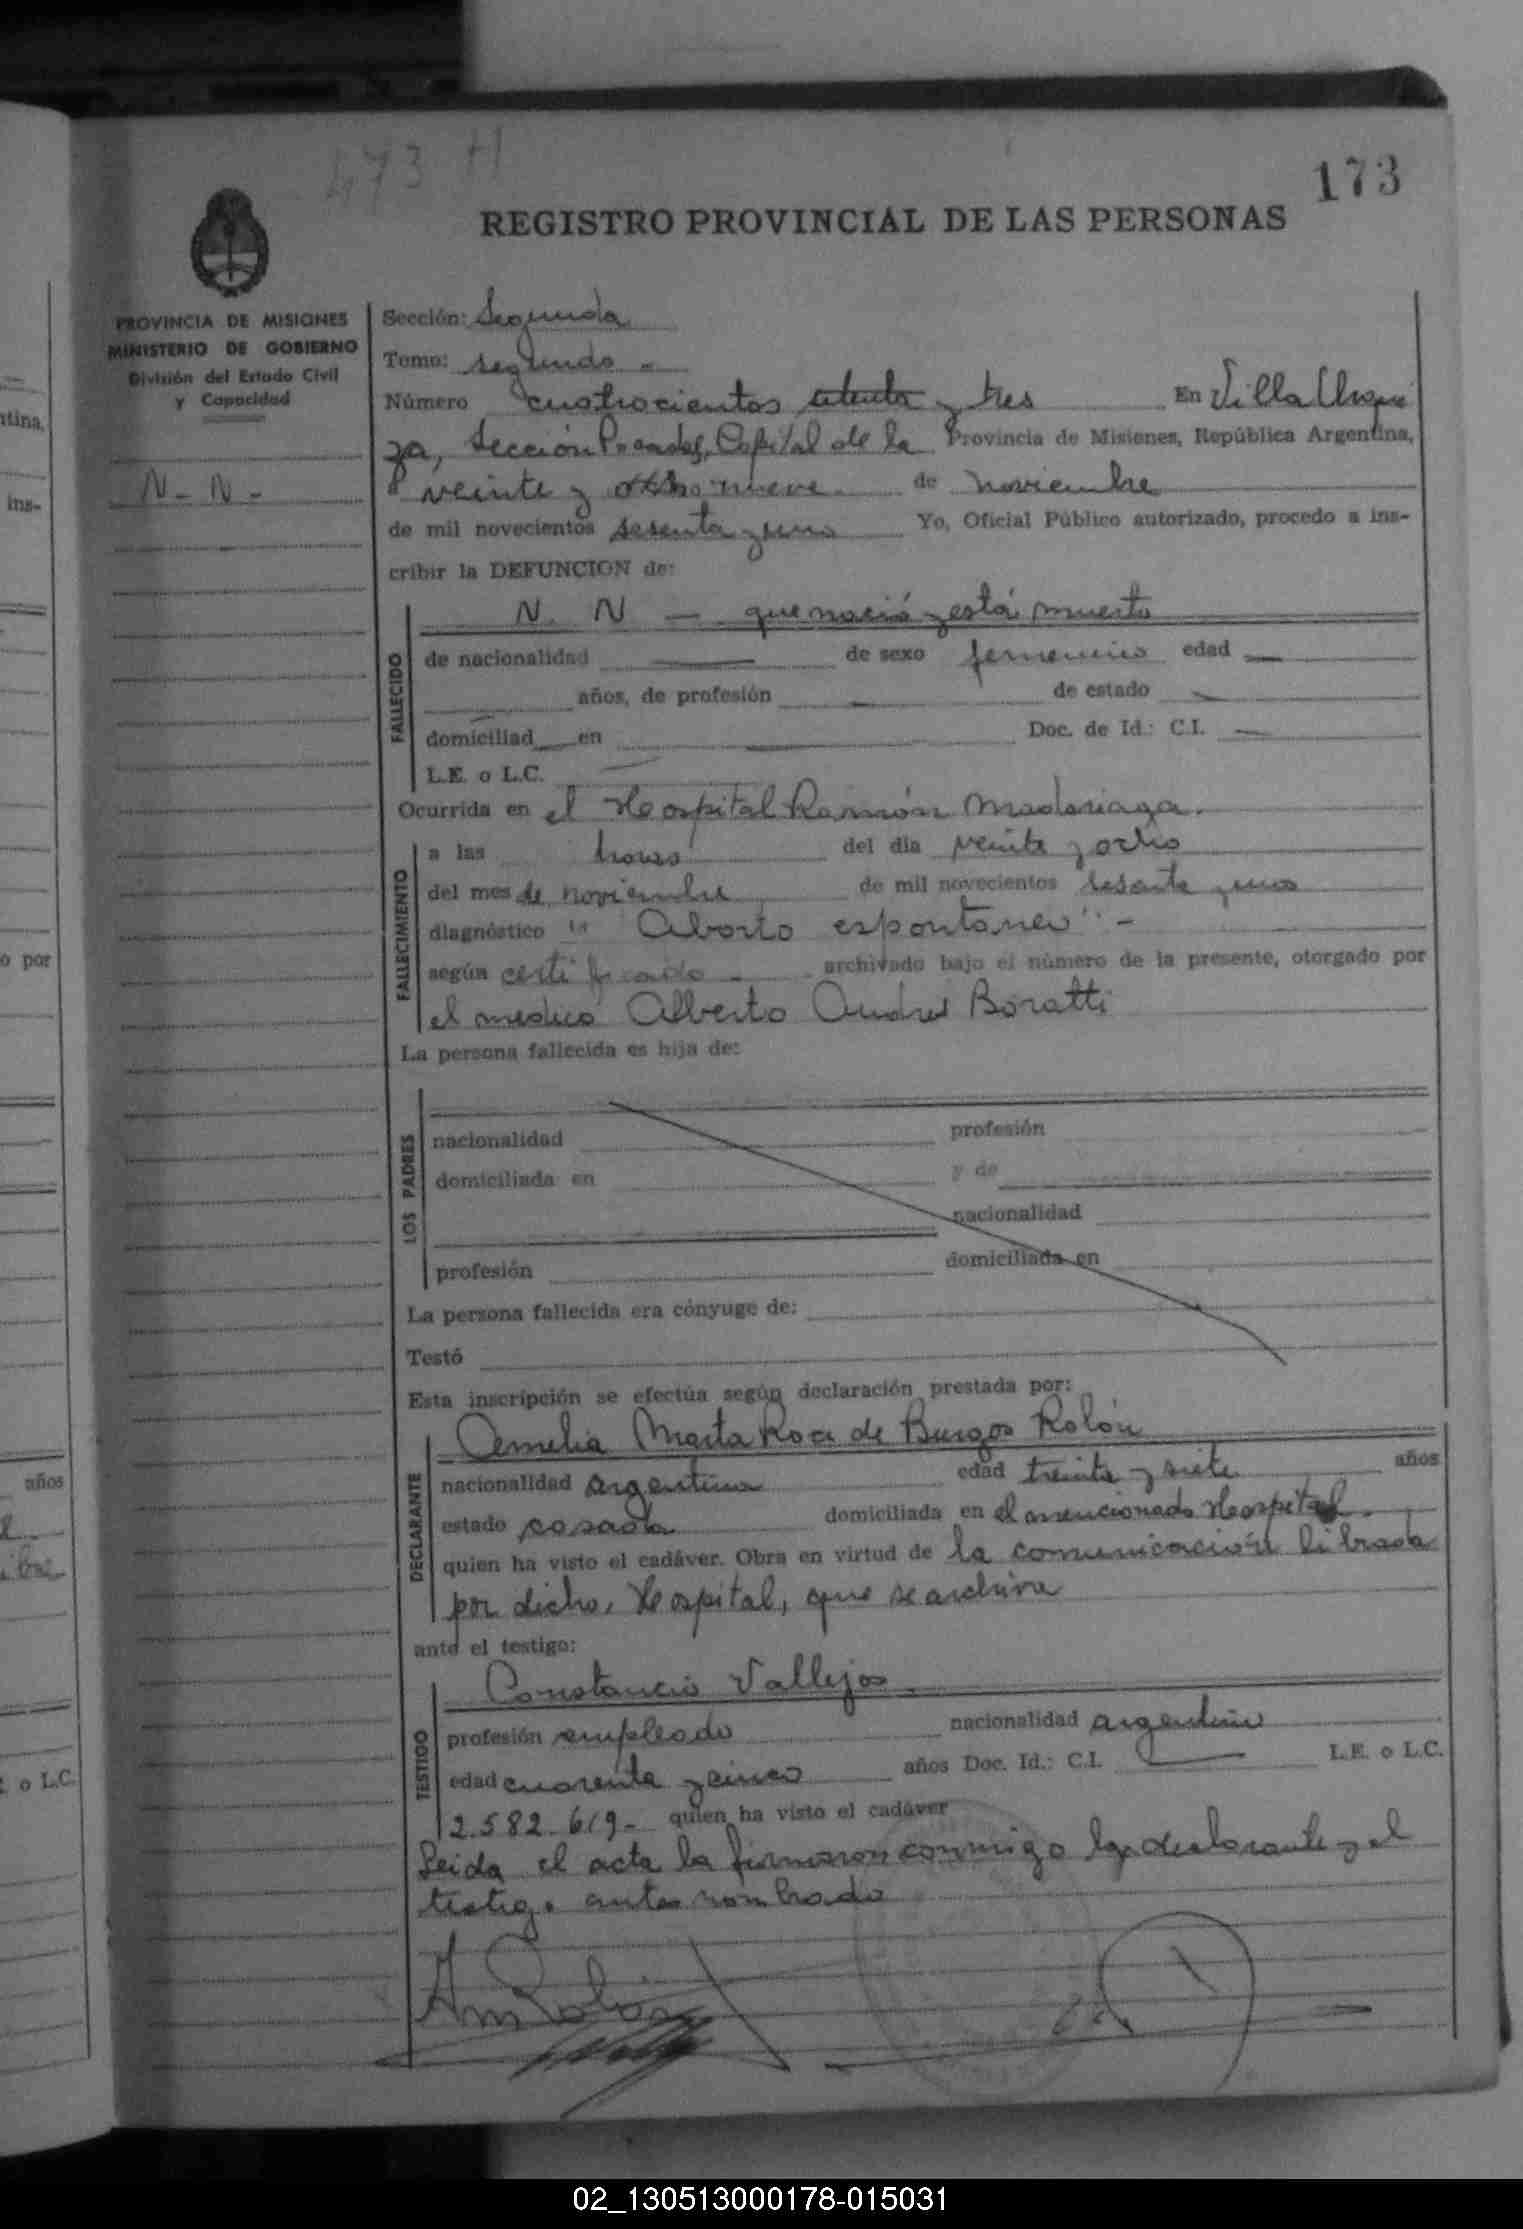 473 H
173
REGISTRO PROVINCIAL DE LAS PERSONAS
PROVINCIA DE MISIONES
MINISTERIO DE GOBIERNO
División del Estado Civil
y Capacidad
N - N -
Sección: Segunda
Tomo: segundo -
Número cuatrocientos setenta y tres En Villa Urqui
za, Sección Posadas, Capital de la Provincia de Misiones, República Argentina,
a veinte y ocho nueve de noviembre
de mil novecientos sesenta y uno Yo, Oficial Público autorizado, procedo a ins-
cribir la DEFUNCION de:
FALLECIDO
N. N — que nació y está muerto
de nacionalidad — de sexo femenino edad —
— años, de profesión — de estado —
domiciliad — en — Doc. de Id.: C.I. —
L.E. o L.C. —
Ocurrida en el Hospital Ramón Madariaga.
FALLECIMIENTO
a las horas del día veinte y ocho
del mes de noviembre de mil novecientos sesenta y uno
diagnóstico "Aborto espontaneo" -
según certificado - archivado bajo el número de la presente, otorgado por
el medico Alberto Andres Boratti
La persona fallecida es hija de:
LOS PADRES
nacionalidad profesión
domiciliada en y de
nacionalidad
profesión domiciliada en
La persona fallecida era cónyuge de:
Testó
Esta inscripción se efectúa según declaración prestada por:
DECLARANTE
Amelia Marta Roa de Burgos Rolón
nacionalidad argentina edad treinta y siete años
estado casada domiciliada en el mencionado Hospital.
quien ha visto el cadáver. Obra en virtud de la comunicación librada
por dicho, Hospital, que se archiva
ante el testigo:
TESTIGO
Constancio Vallejos.
profesión empleado nacionalidad argentino
edad cuarenta y cinco años Doc. Id.: C.I. — L.E. o L.C.
2.582.619- quien ha visto el cadáver
Leida el acta la firmaron conmigo la declarante y el
testigo antes nombrado
AmRolón
tina,
ins-
o por
años
o L.C.
02_130513000178-015031